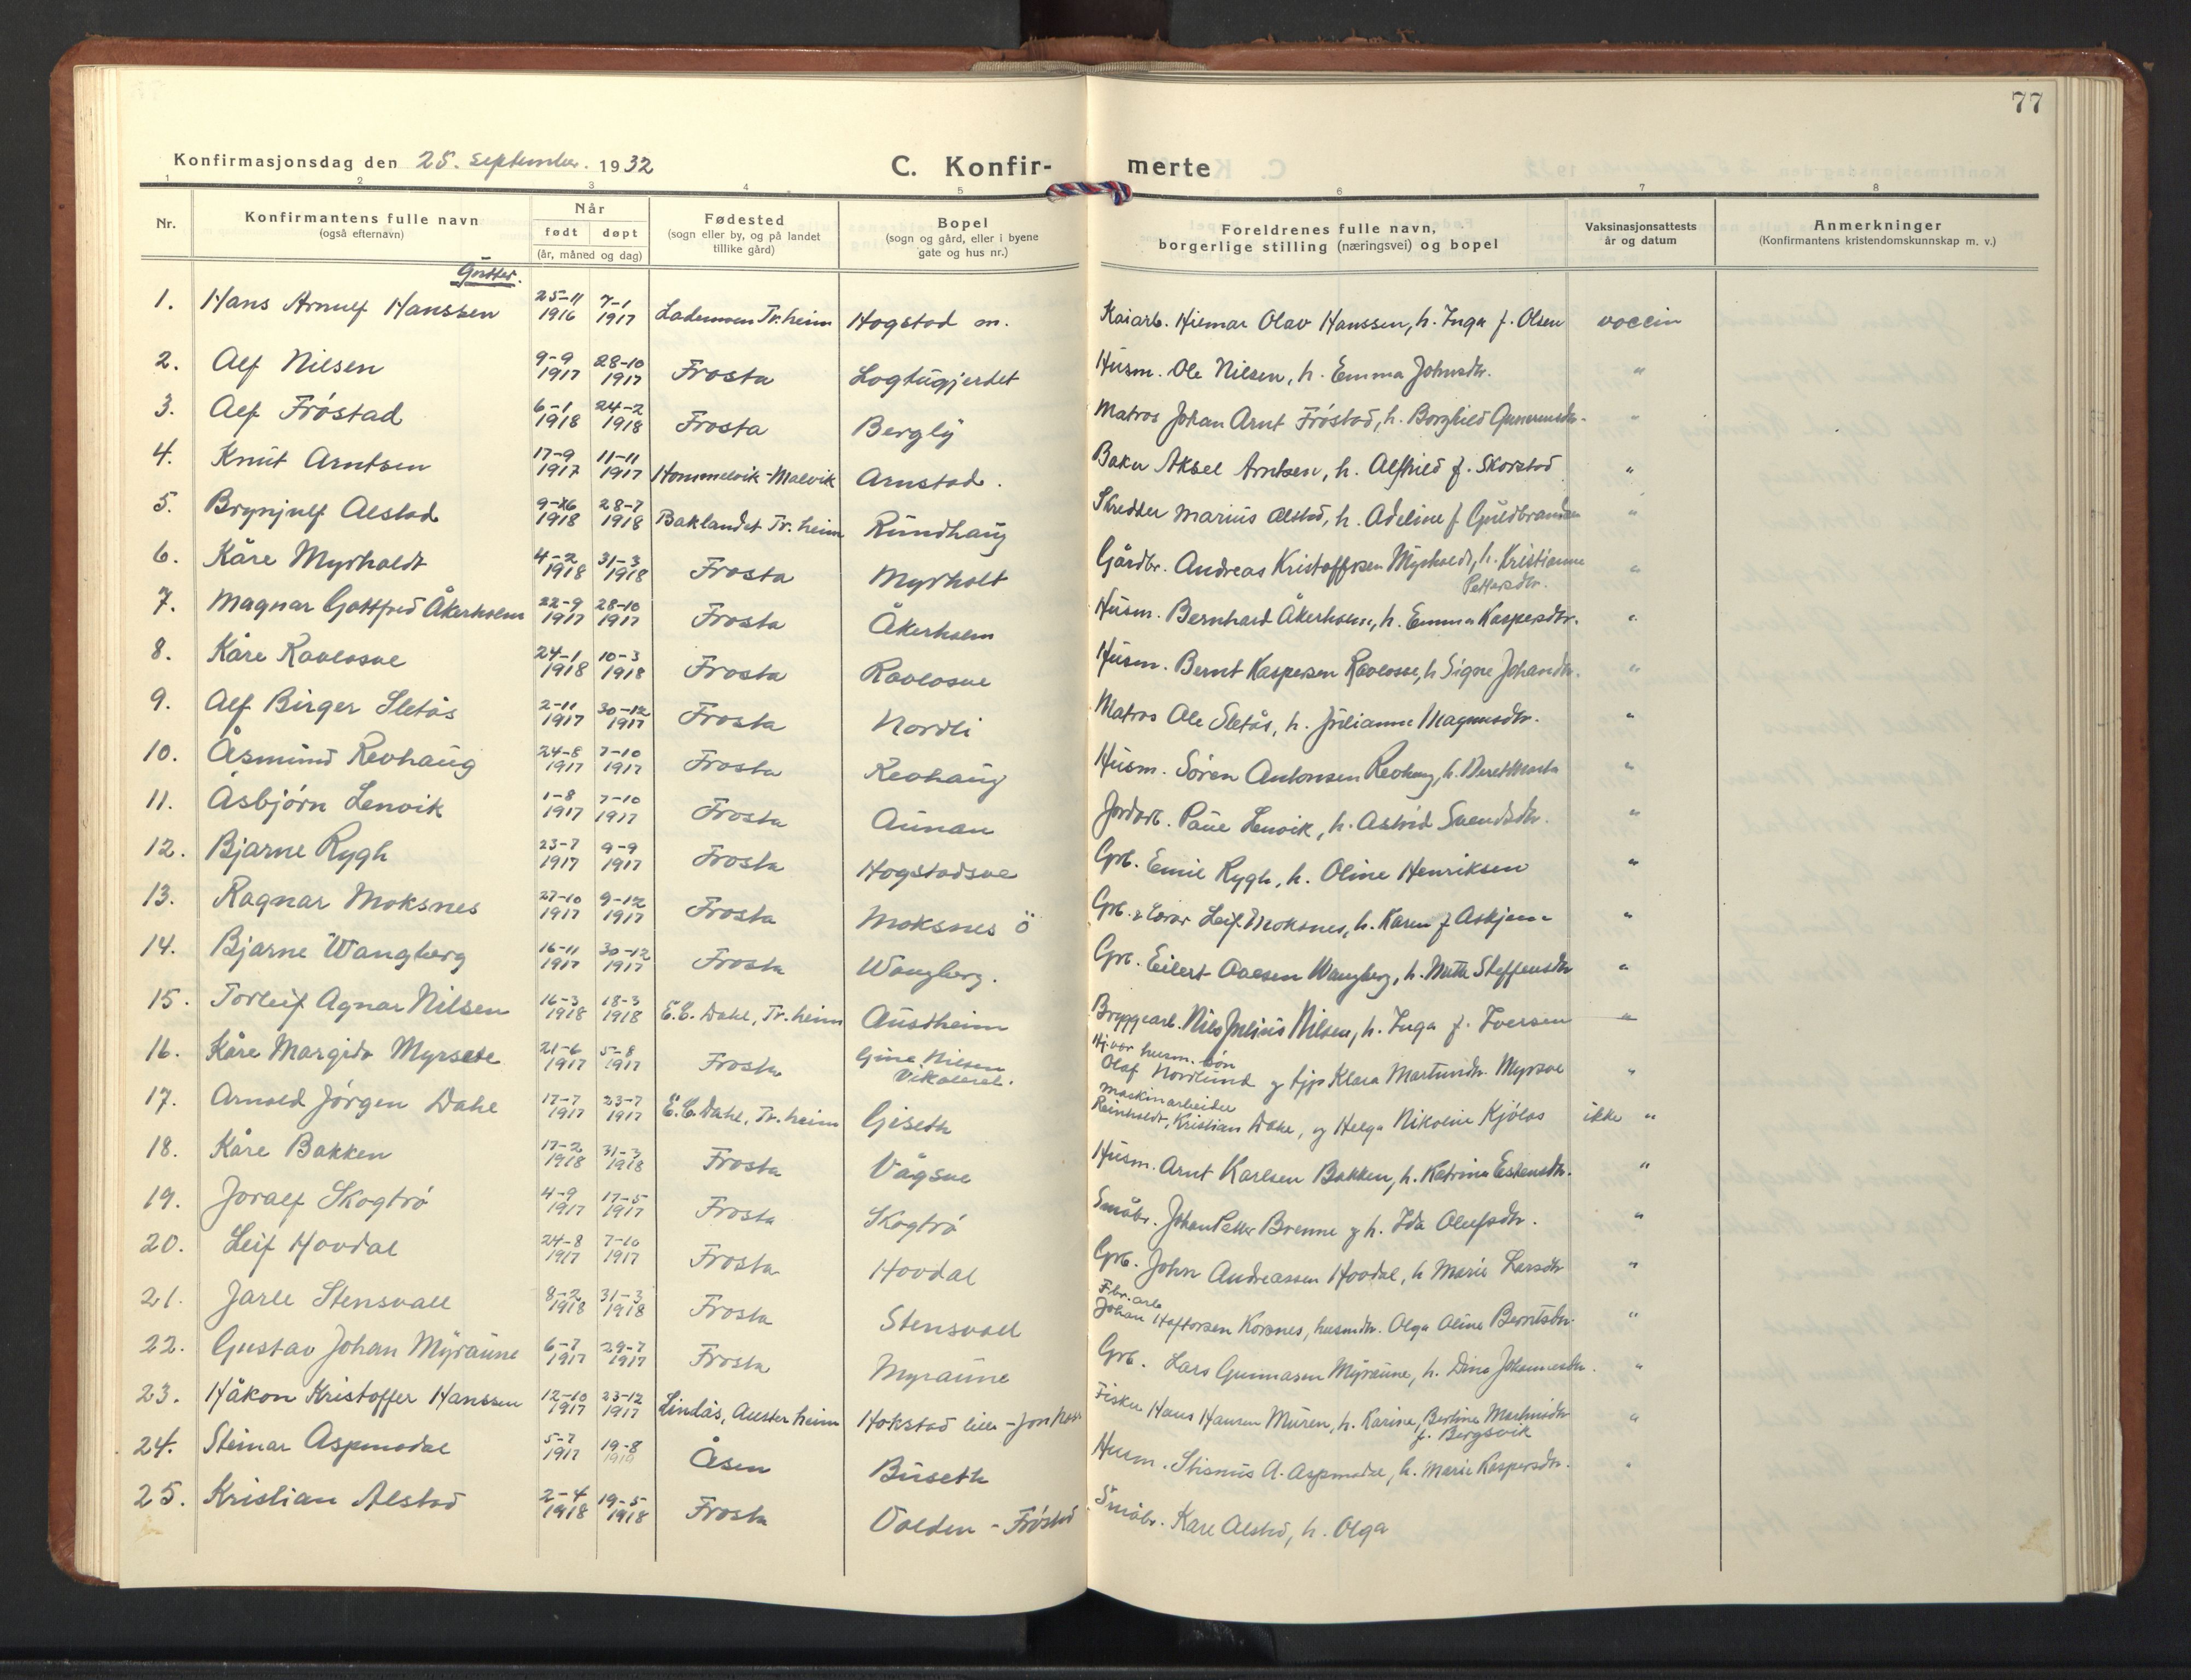 77
Konfirmasjonsdag den 25. september. 1932 C. Konfir- merte
1 2 3 4 5 6 7 8
Nr. Konfirmantens fulle navn (også efternavn) Når født døpt (år, måned og dag) Fødested (sogn eller by, og på landet tillike gård) Bopel (sogn og gård, eller i byene gate og hus nr.) Foreldrenes fulle navn, borgerlige stilling (næringsvei) og bopel Vaksinasjonsattests år og datum Anmerkninger (Konfirmantens kristendomskunnskap m. v.)
Gutter.
1. Hans Arnulf Hanssen 25-11 1916 7-1 1917 Lademoen Tr.heim Hogstad m. Kaiarb. Hilmar Olav Hanssen, h. Inga f. Olsen vaccin
2. Alf Nilsen 9-9 1917 28-10 1917 Frosta Logtugjerdet Husm. Ole Nilsen, h. Emma Johnsdtr. "
3. Alf Fróstad 6-1 1918 24-2 1918 Frosta Bergly Matros Johan Arnt Fróstad, h. Borghild "
4. Knut Arntsen 17-9 1917 11-11 1917 Hommelvik-Malvik Arnstad. Baker Aksel Arntsen, h. Alfhild f. Skorstad "
5. Brynjulf Alstad 9-6 1918 28-7 1918 Baklandet Tr. heim Rundhaug Skredder Marius Alstad, h. Adeline f Guldbrandsen "
6. Kåre Myrholdt 4-2 1918 31-3 1918 Frosta Myrholt Gårdbr. Andreas Kristoffersen Myrholdt, h. Kristianne Pettersdtr. "
7. Magnar Gottfred Åkerholm 22-9 1917 28-10 1917 Frosta Åkerholm Husm. Bernhard Åkerholm, h. Emma Kaspersdtr. "
8. Kåre Ravlosve 24-1 1918 10-3 1918 Frosta Ravlosve Husm. Bernt Kaspersen Ravlosve, h Signe Johansdtr. "
9. Alf Birger Sletås 2-11 1917 30-12 1917 Frosta Nordli Matros Ole Sletås, h. Julianne Magnusdtr. "
10. Åsmund Revhaug 24-8 1917 7-10 1917 Frosta Revhaug Husm. Sören Antonsen Revhaug, h. Beret Marta "
11. Åsbjórn Lenvik 1-8 1917 7-10 1917 Frosta Aunan Jordarb. Paul Lenvik, h. Astrid Svendsdtr. "
12. Bjarne Rygh 23-7 1917 9-9 1917 Frosta Hogstadsve Grb. Emil Rygh, h. Oline Henriksen "
13. Ragnar Moksnes 27-10 1917 9-12 1917 Frosta Moksnes ö Grb. & Leif Moksnes, h. Karen f Askjem "
14. Bjarne Wangberg 16-11 1917 30-12 1917 Frosta Wangberg. Grb. Eilert Wangberg, h. Mette Steffensdtr "
15. Torleif Agnar Nilsen 16-3 1918 18-3 1918 E.C. Dahl, Tr. heim Austheim Bryggearb. Nils Julius Nilsen, h. Inga f. Iversen "
16. Kåre Margido Myrsete 21-6 1917 5-8 1917 Frosta Gine Nilsen husm. sön Olaf Nordlund og tjp Klara Martinsdtr. Myrsve "
17. Arnold Jórgen Dahl 17-7 1917 23-7 1917 E.C. Dahl, Tr. heim Giseth Maskinarbeider Reinholdt, Kristian Dahl, og Helga Nikoline Kjólås ikke "
18. Kåre Bakken 17-2 1918 31-3 1918 Frosta Vågsve Husm. Arnt Karlsen Bakken, h. Katrine Estensdtr. "
19. Joralf Skogtró 4-9 1917 17-5 1917 Frosta Skogtró Småbr. Johan Petter Brenne og h. Ida Olufsdtr. "
20. Leif Hovdal 24-8 1917 7-10 1917 Frosta Hovdal Grb. John Andreassen Hovdal, h Marie Larsdtr "
21. Jarle Stensvall 8-2 1918 31-3 1918 Frosta Stensvall Fbr. arb Johan Haftorsen Korsnes, husmdtr. Olga Oline Berntsdtr. "
22. Gustav Johan Myraune 6-7 1917 29-7 1917 Frosta Myraune Grb. Lars Gunnasen Myraune, h. Dina Johannesdtr. "
23. Håkon Kristoffer Hanssen 12-10 1917 23-12 1917 Lindås, Austerheim Hokstad lille - Fisker Hans Hansen Muren, h. Karine, Berline Martinsdtr f. Bergsvik "
24. Steinar Aspmodal 5-7 1917 19-8 Åsen Buseth Husm. A. Aspmodal, h. Marie Kaspersdtr. "
25. Kristian Alstad 2-4 1918 19-5 1918 Frosta Volden - Fróstad Småbr. Kare Alstad, h. Olga